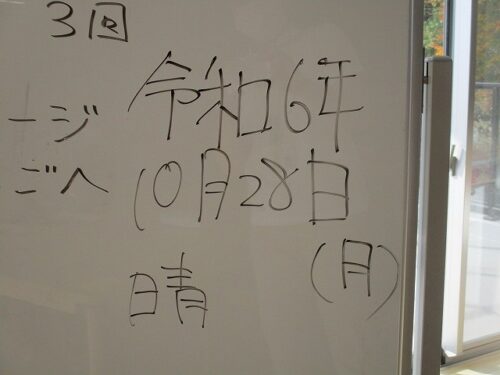 3回
ージ
ごへ
令和6年
10月28日
(月)
晴